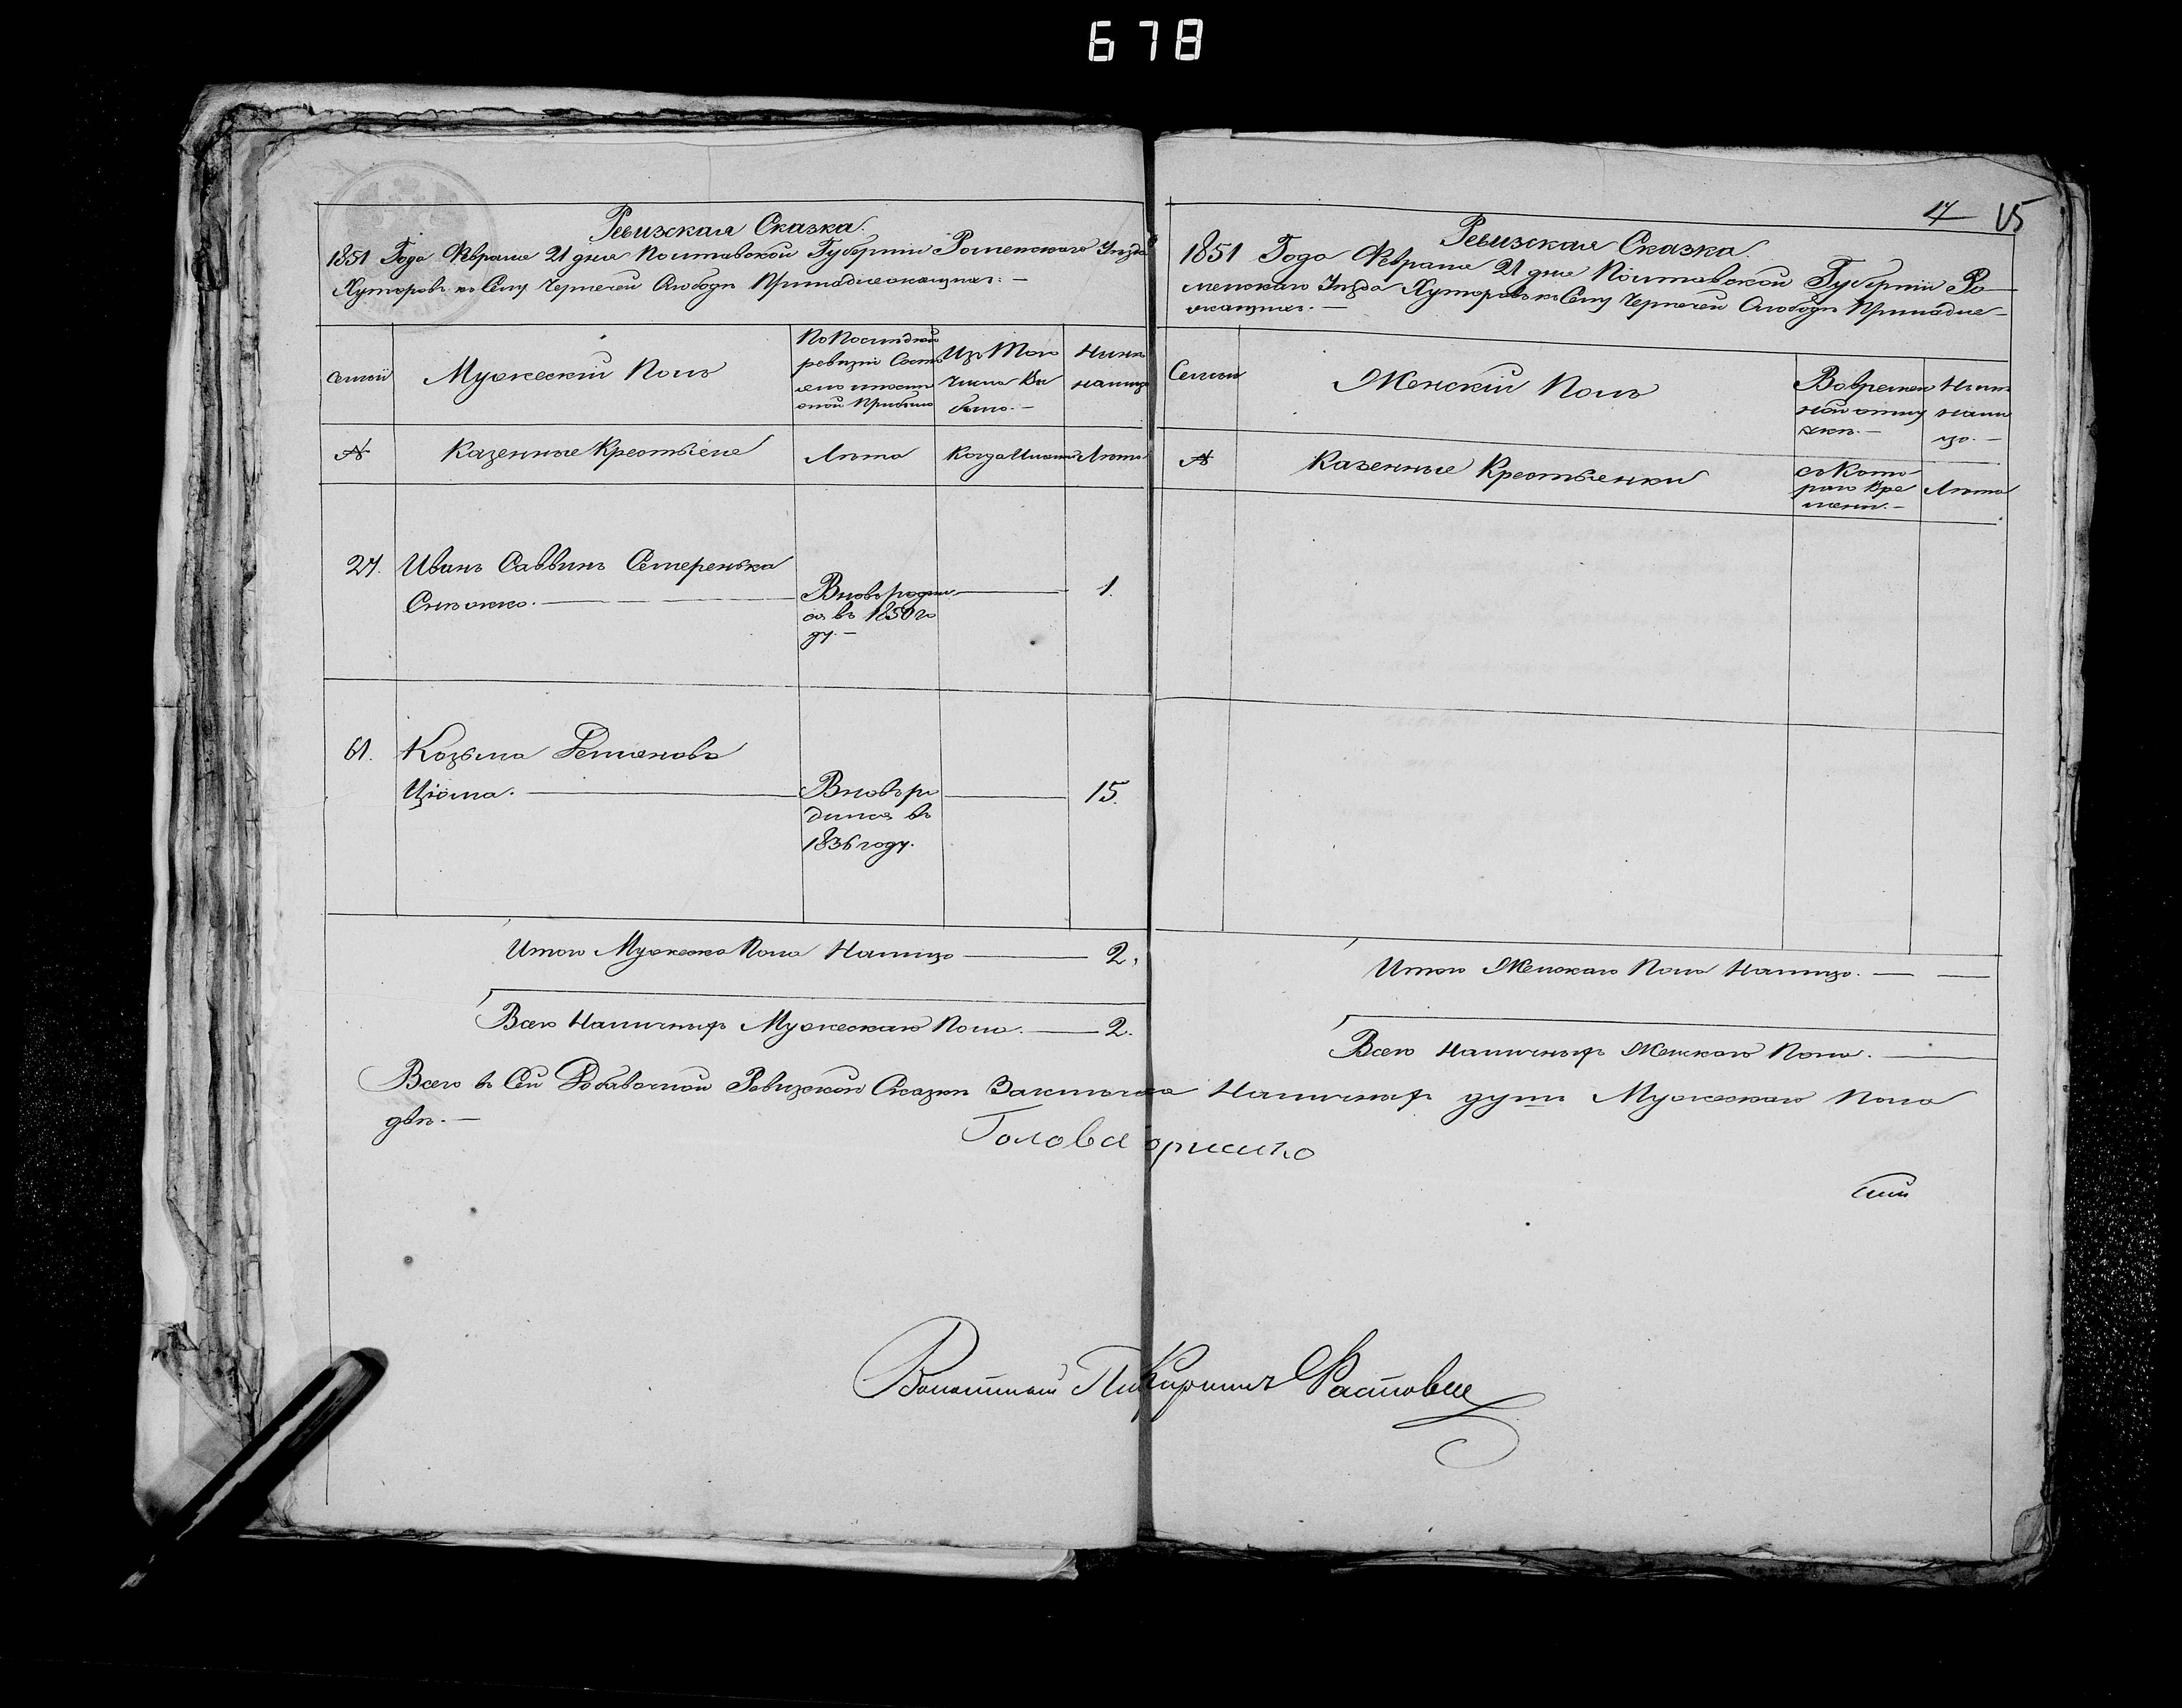 678
Ревизская Сказка.
1851 Года Февраля 21 дня Полтавской Губернiи Роменскаго Уѣзда
Хуторовъ къ Селу Чернечей Слободѣ Принадлежащихъ. —
семьи
Мужескiй Полъ
По Последней
ревизiи Состо
яло и после
оной Прибыло
Изъ Того
Числа Вы
было. —
Нынѣ
налицо
№
Казенные Крестьяне
Лѣта
Когда Именно
Лѣта
27. Иванъ Саввинъ Семеренька
Снѣжко. —
Вновь родил
ся въ 1850 го
ду. —
1.
61. Козьма Семеновъ
Цiома. —
Вновь ро
дился въ
1836 году.
15.
Итого Мужеска Пола Налицо — 2.
Всего Наличныхъ Мужескаго Пола. — 2.
17 15
Ревизская Сказка.
1851 Года Февраля 21 дня Полтавской Губернiи Ро-
менскаго Уѣзда Хуторовъ къ Селу Чернечей Слободѣ Принадле-
жащихъ. —
Семьи
Женскiй Полъ
Во времен
ной отлу
чкѣ. —
Нынѣ
нали
цо. —
№
Казенные Крестьянки
съ Кото-
раго Вре
мени. —
Лѣта
Итого Женскаго Пола Налицо. — —
Всего Наличныхъ Женскаго Пола. —
Всего въ Сей Добавочной Ревизской Сказкѣ Заключается Наличныхъ душъ Мужескаго Пола
двѣ. —
Голова
Волостный Писарь Кирилъ Растовец